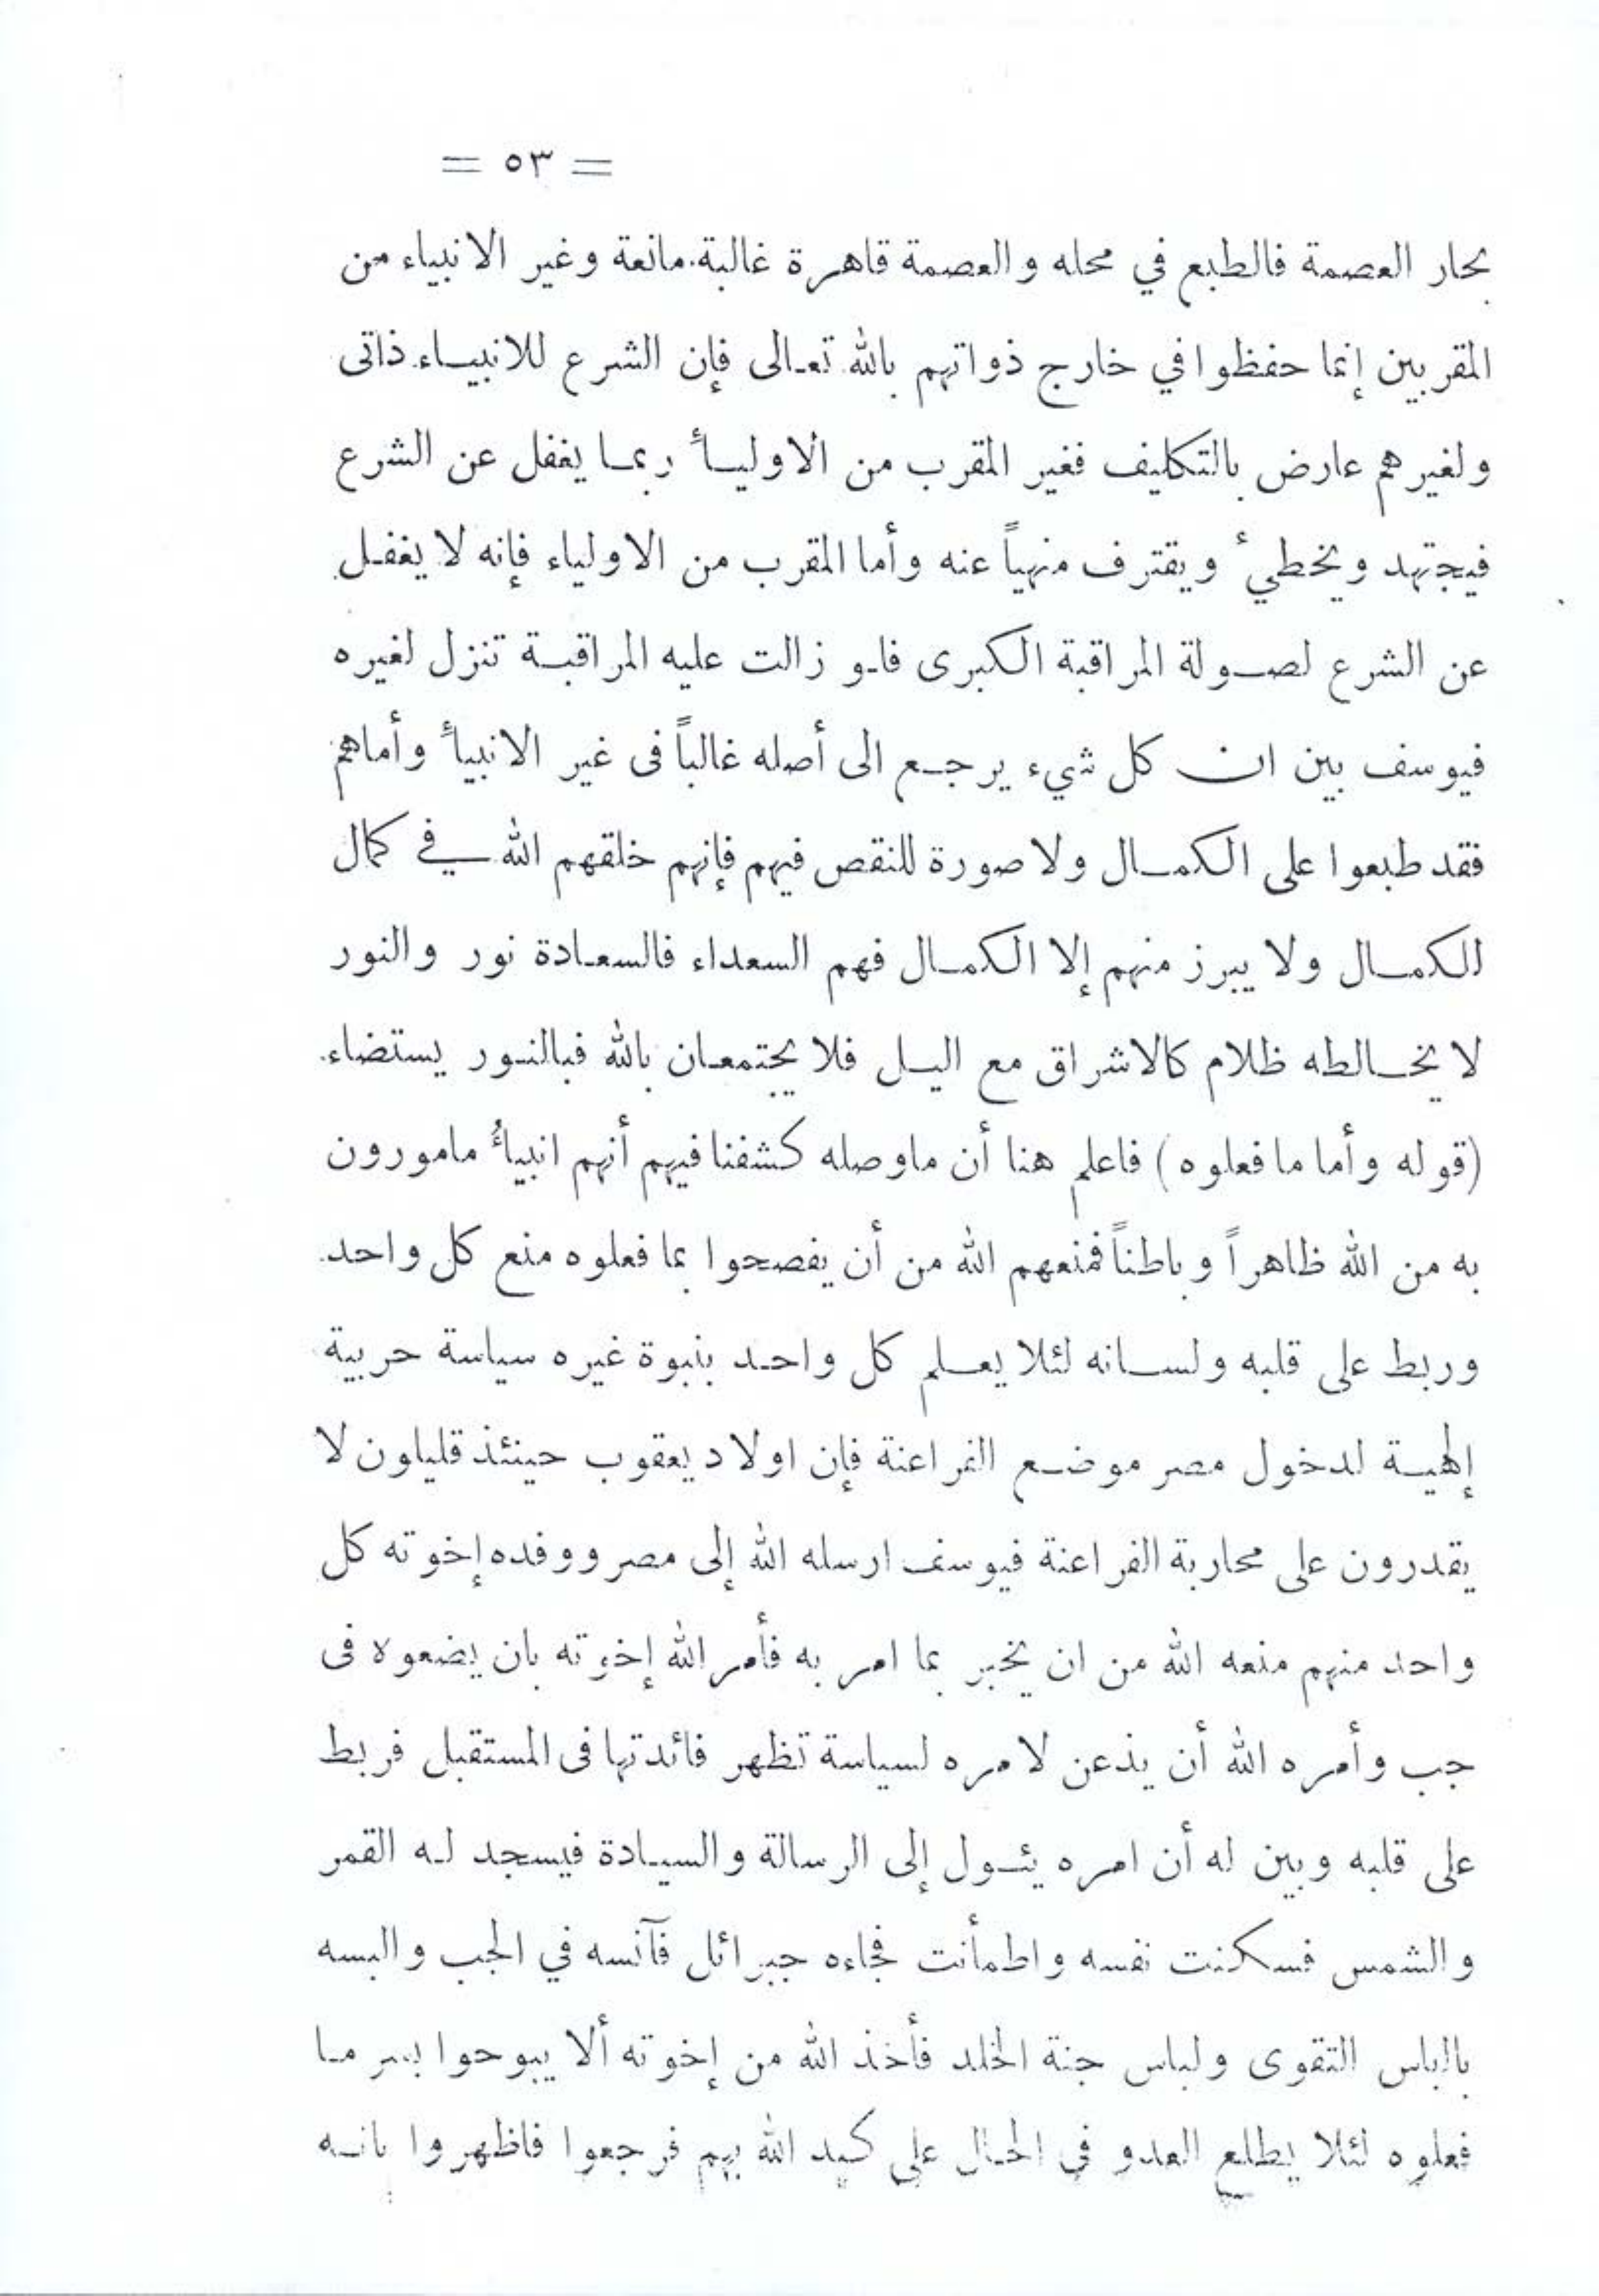 = ٥٣ =
بحار العصمة فالطبع في محله والعصمة قاهرة غالبة مانعة وغير الانبياء من
المقربين إنما حفظوا في خارج ذواتهم بالله تعالى فإن الشرع للانبياء ذاتى
ولغيرهم عارض بالتكليف فغير المقرب من الاوليأ ربما يغفل عن الشرع
فيجتهد ويخطيء ويقترف منهياً عنه وأما المقرب من الاولياء فإنه لا يغفل
عن الشرع لصولة المراقبة الكبرى فلو زالت عليه المراقبة تنزل لغيره
فيوسف بين ان كل شيء يرجع الى أصله غالباً فى غير الانبيأ وأماهم
فقد طبعوا على الكمال ولا صورة للنقص فيهم فإنهم خلقهم الله في كمال
الكمال ولا يبرز منهم إلا الكمال فهم السعداء فالسعادة نور والنور
لا يخالطه ظلام كالاشراق مع اليل فلا يجتمعان بالله فبالنور يستضاء.
(قوله وأما ما فعلوه) فاعلم هنا أن ماوصله كشفنا فيهم أنهم انبيأُ مامورون
به من الله ظاهراً وباطناً فمنعهم الله من أن يفصحوا بما فعلوه منع كل واحد
وربط على قلبه ولسانه لئلا يعلم كل واحد بنبوة غيره سياسة حربية
إلهية لدخول مصر موضع الفراعنة فإن اولاد يعقوب حينئذ قليلون لا
يقدرون على محاربة الفراعنة فيوسف ارسله الله إلى مصر ووفده إخوته كل
واحد منهم منعه الله من ان يخبر بما امر به فأمر الله إخوته بان يضعوه فى
جب وأمره الله أن يذعن لامره لسياسة تظهر فائدتها فى المستقبل فربط
على قلبه وبين له أن امره يئول إلى الرسالة والسيادة فيسجد له القمر
والشمس فسكنت نفسه واطمأنت فجاءه جبرائل فآنسه في الجب والبسه
بالباس التقوى ولباس جنة الخلد فأخذ الله من إخوته ألا يبوحوا بسر ما
فعلوه لئلا يطلع العدو في الحال على كيد الله بهم فرجعوا فاظهروا بانه